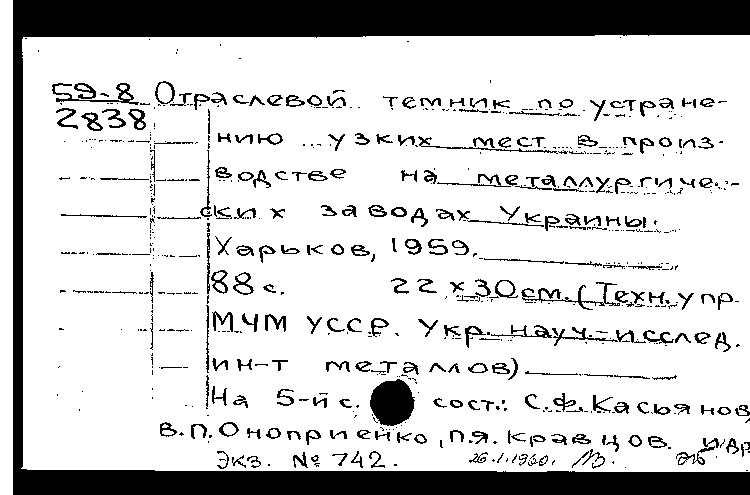 59-8 Отраслевой темник по устране-
2838
нию узких мест в произ-
водстве на металлургиче-
ских заводах Украины.
Харьков, 1959.
88 с. 22 х 30 см. (Техн. упр.
МЧМ УССР. Укр. науч.-исслед.
ин-т металлов)
На 5-й с. сост.: С.Ф. Касьянов,
В.П. Оноприенко, П.Я. Кравцов. и др
Экз. № 742. 26.1.1960.